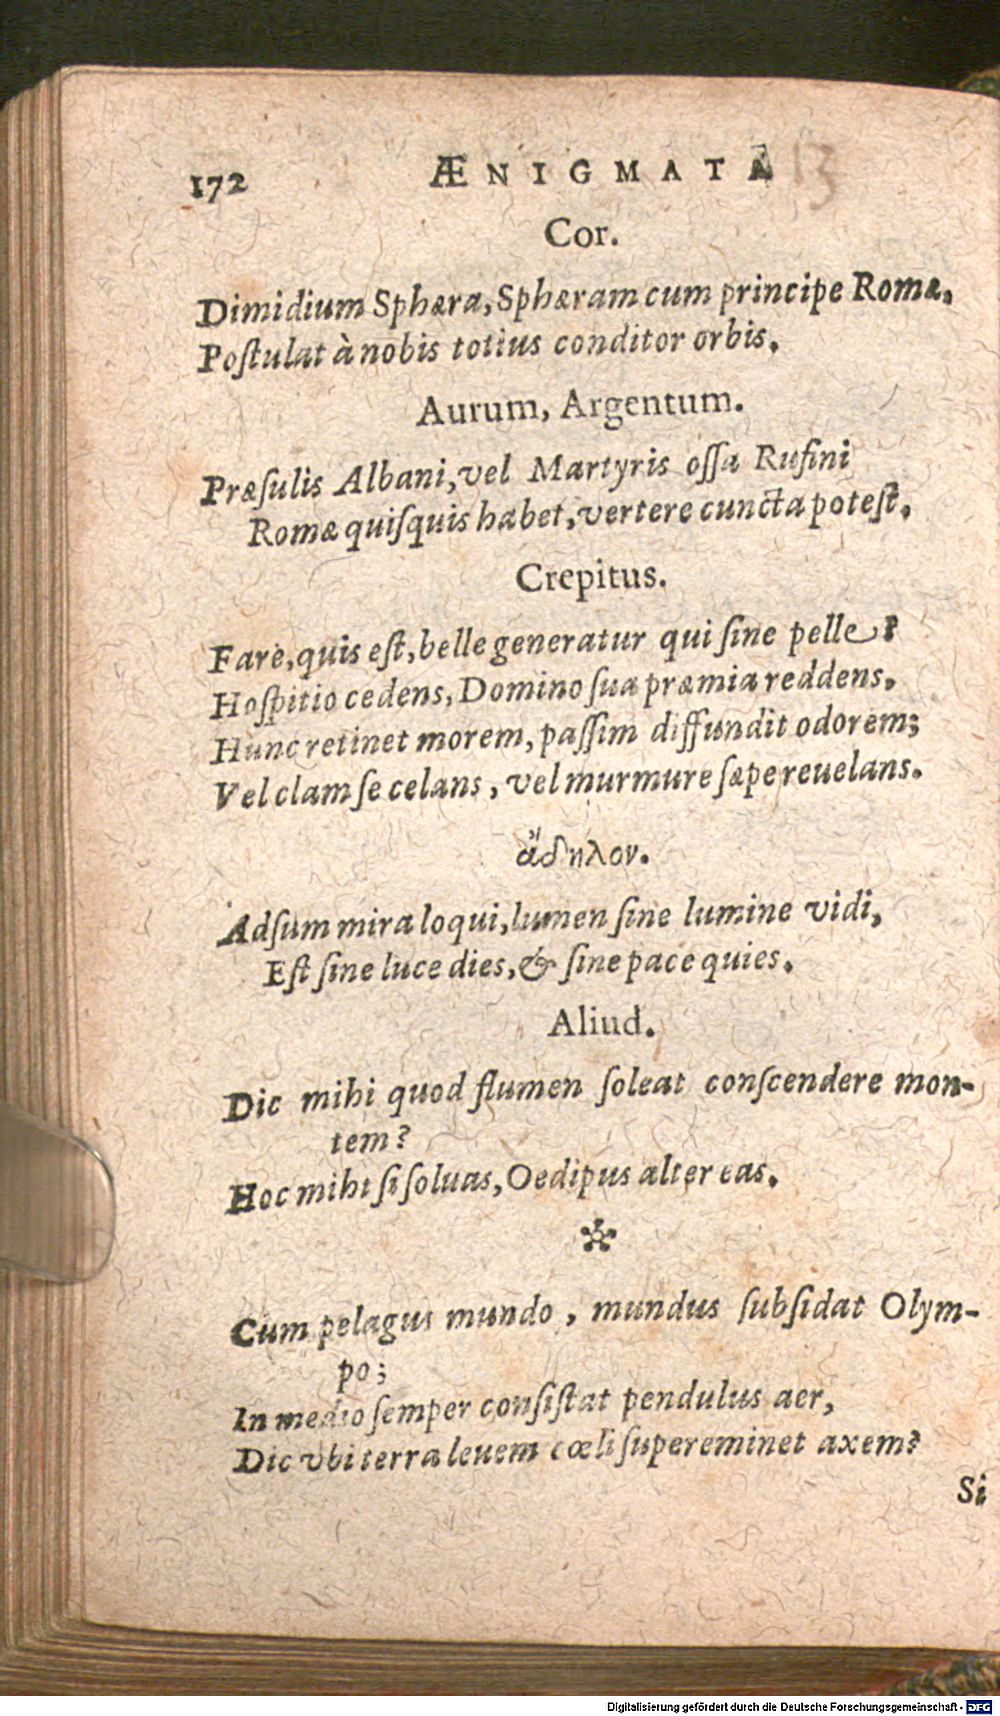 172 ÆNIGMATA 13
Cor.
Dimidium Sphæra, Sphæram cum principe Romæ,
Poſtulat à nobis totius conditor orbis.
Aurum, Argentum.
Præſulis Albani, vel Martyris oſſa Rufini
Romæ quiſquis habet, vertere cuncta poteſt.
Crepitus.
Fare, quis eſt, belle generatur qui ſine pelle?
Hoſpitio cedens, Domino ſua præmia reddens.
Hunc retinet morem, paſſim diffundit odorem;
Vel clam ſe celans, vel murmure ſæpe reuelans.
ἄδηλον.
Adſum mira loqui, lumen ſine lumine vidi,
Eſt ſine luce dies, & ſine pace quies.
Aliud.
Dic mihi quod flumen ſoleat conſcendere mon-
tem?
Hoc mihi ſi ſoluas, Oedipus alter eas.
Cum pelagus mundo, mundus ſubſidat Olym-
po;
In medio ſemper conſiſtat pendulus aer,
Dic vbi terra leuem cœli ſupereminet axem?
Si
Digitalisierung gefördert durch die Deutsche Forschungsgemeinschaft - DFG